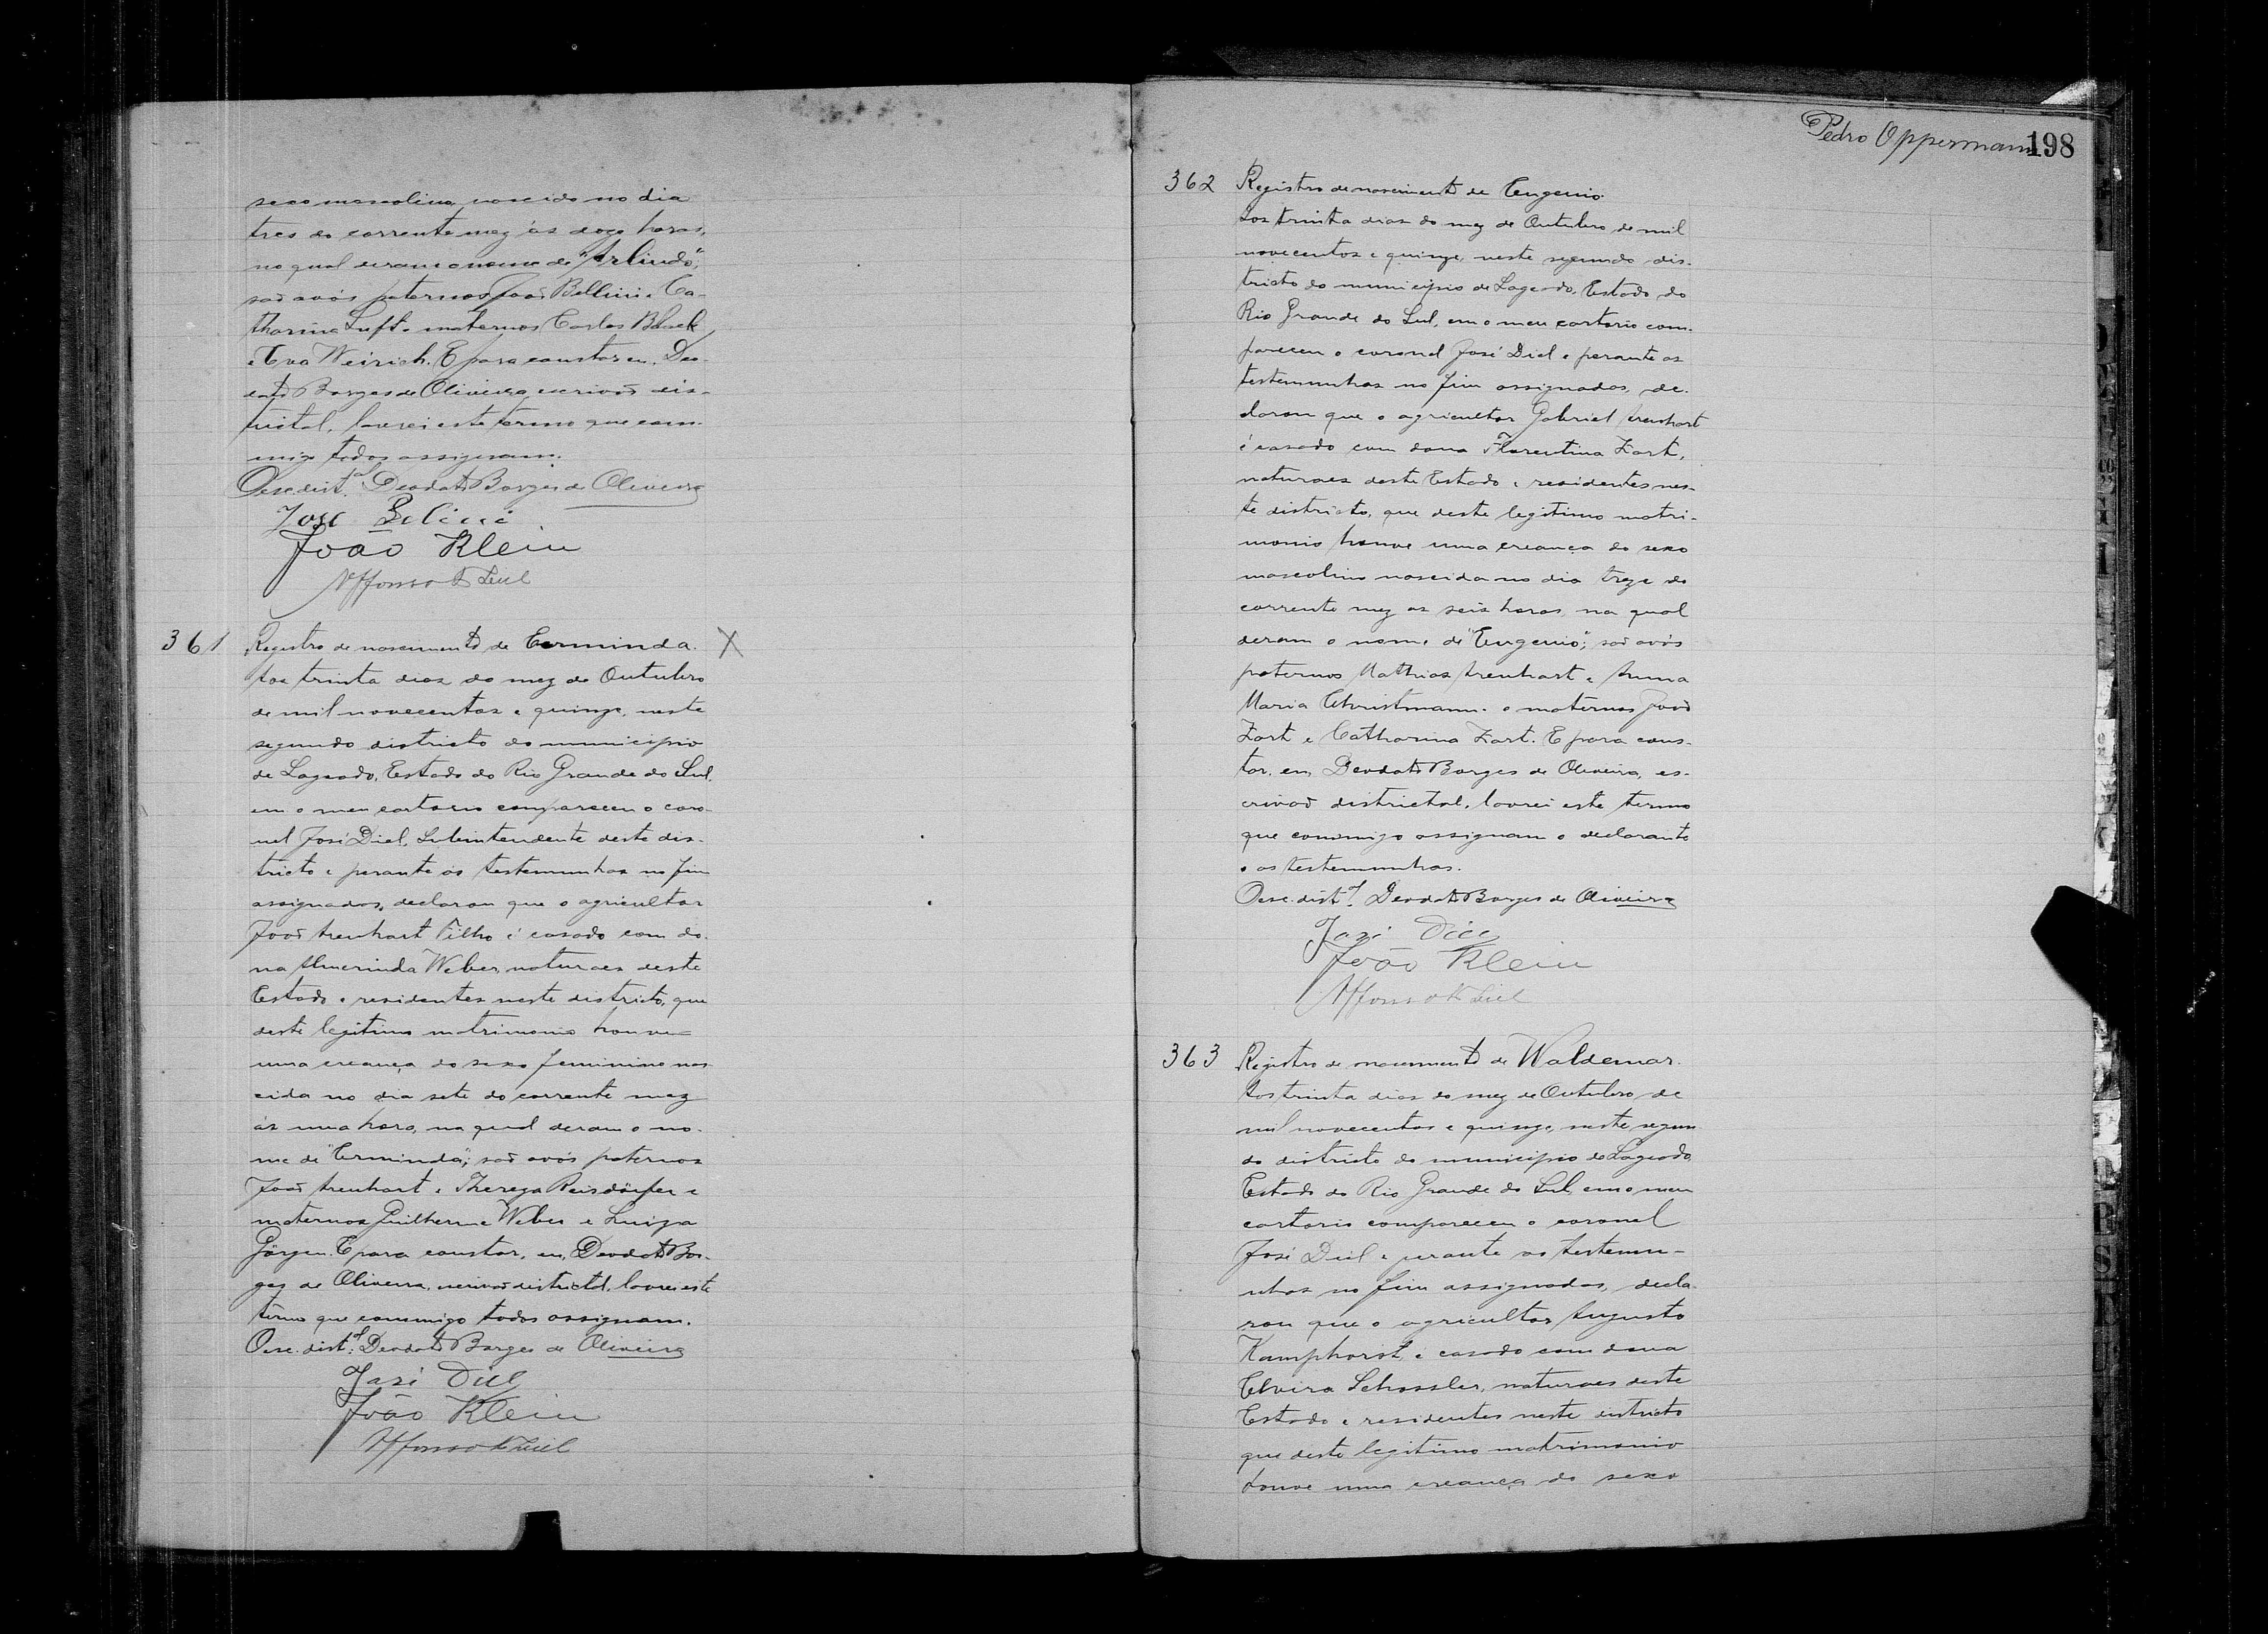 sexo masculino, nascido no dia
tres do corrente mez ás doze horas,
no qual deram o nome de "Arlindo";
saõ avós paternos Joaõ Bellini e Ca-
tharina Luft e maternos Carlos Black
e Eva Weirich. E para constar eu, Deo-
dato Borges de Oliveira escrivaõ dis-
trictal, lavrei este termo que com-
migo todos assignam.
O esc. dist.al Deodato Borges de Oliveira
José Belini
João Klein
Affonso A Diel
361 Registro de nascimento de Erminda. X
Aos trinta dias do mez de Outubro
de mil novecentos e quinze, neste
segundo districto do municipio
de Lageado, Estado do Rio Grande do Sul,
em o meu cartorio compareceu o coro-
nel José Diel, Subintendente deste dis-
tricto e perante as testemunhas no fim
assignadas, declarou que o agricultor
Joaõ Arenhart Filho é casado com do-
na Almerinda Weber, naturaes deste
Estado e residentes neste districto, que
deste legitimo matrimonio houve
uma creança do sexo feminino nas-
cida no dia sete do corrente mez
ás uma hora, na qual deram o no-
me de "Erminda"; saõ avós paternos
Joaõ Arenhart e Thereza Reisdörfer e
maternos Guilherme Weber e Luiza
Görgen. E para constar, eu, Deodato Bor-
ges de Oliveira, escrivaõ districtal, lavrei este
termo que commigo todos assignam.
O esc. dist.al Deodato Borges de Oliveira
José Diel
João Klein
Affonso A Diel
Pedro Oppermann 198
362 Registro de nascimento de Eugenio.
Aos trinta dias do mez de Outubro de mil
novecentos e quinze, neste segundo dis-
tricto do municipio de Lageado, Estado do
Rio Grande do Sul, em o meu cartorio com-
pareceu o coronel José Diel e perante as
testemunhas no fim assignadas, de-
clarou que o agricultor Gabriel Arenhart
é casado com dona Florentina Zart,
naturaes deste Estado e residentes nes-
te districto, que deste legitimo matri-
monio houve uma creança do sexo
masculino nascida no dia treze do
corrente mez as seis horas, na qual
deram o nome de "Eugenio"; saõ avós
paternos Mathias Arenhart e Anna
Maria Christmann e maternos Joaõ
Zart e Catharina Zart. E para cons-
tar, eu, Deodato Borges de Oliveira, es-
crivaõ districtal, lavrei este termo
que commigo assignam o declarante
e as testemunhas.
O esc. dist.al Deodato Borges de Oliveira
José Diel
João Klein
Affonso A Diel
363 Registro de nascimento de Waldemar.
Aos trinta dias do mez de Outubro de
mil novecentos e quinze, neste segun-
do districto do municipio de Lageado,
Estado do Rio Grande do Sul, em o meu
cartorio compareceu o coronel
José Diel e perante as testemu-
nhas no fim assignadas, decla-
rou que o agricultor Augusto
Kamphorst, é casado com dona
Elvira Schossler, naturaes deste
Estado e residentes neste districto
que deste legitimo matrimonio
houve uma creança do sexo